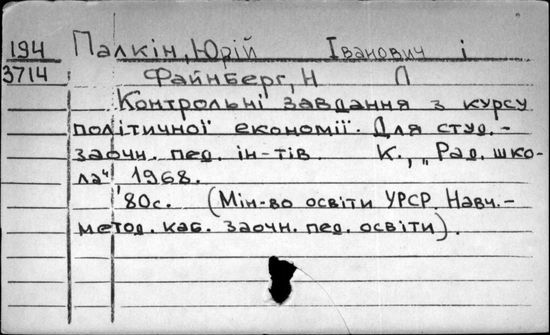 194 Палкін, Юрій Іванович і
3714 Файнберг, Н Л
Контрольні завдання з курсу
політичної економії. Для студ.-
заочн. пед. ін-тів. К., „Рад. шко-
ла“ 1968.
80с. (Мін-во освіти УРСР. Навч.-
метод. каб. заочн. пед. освіти).